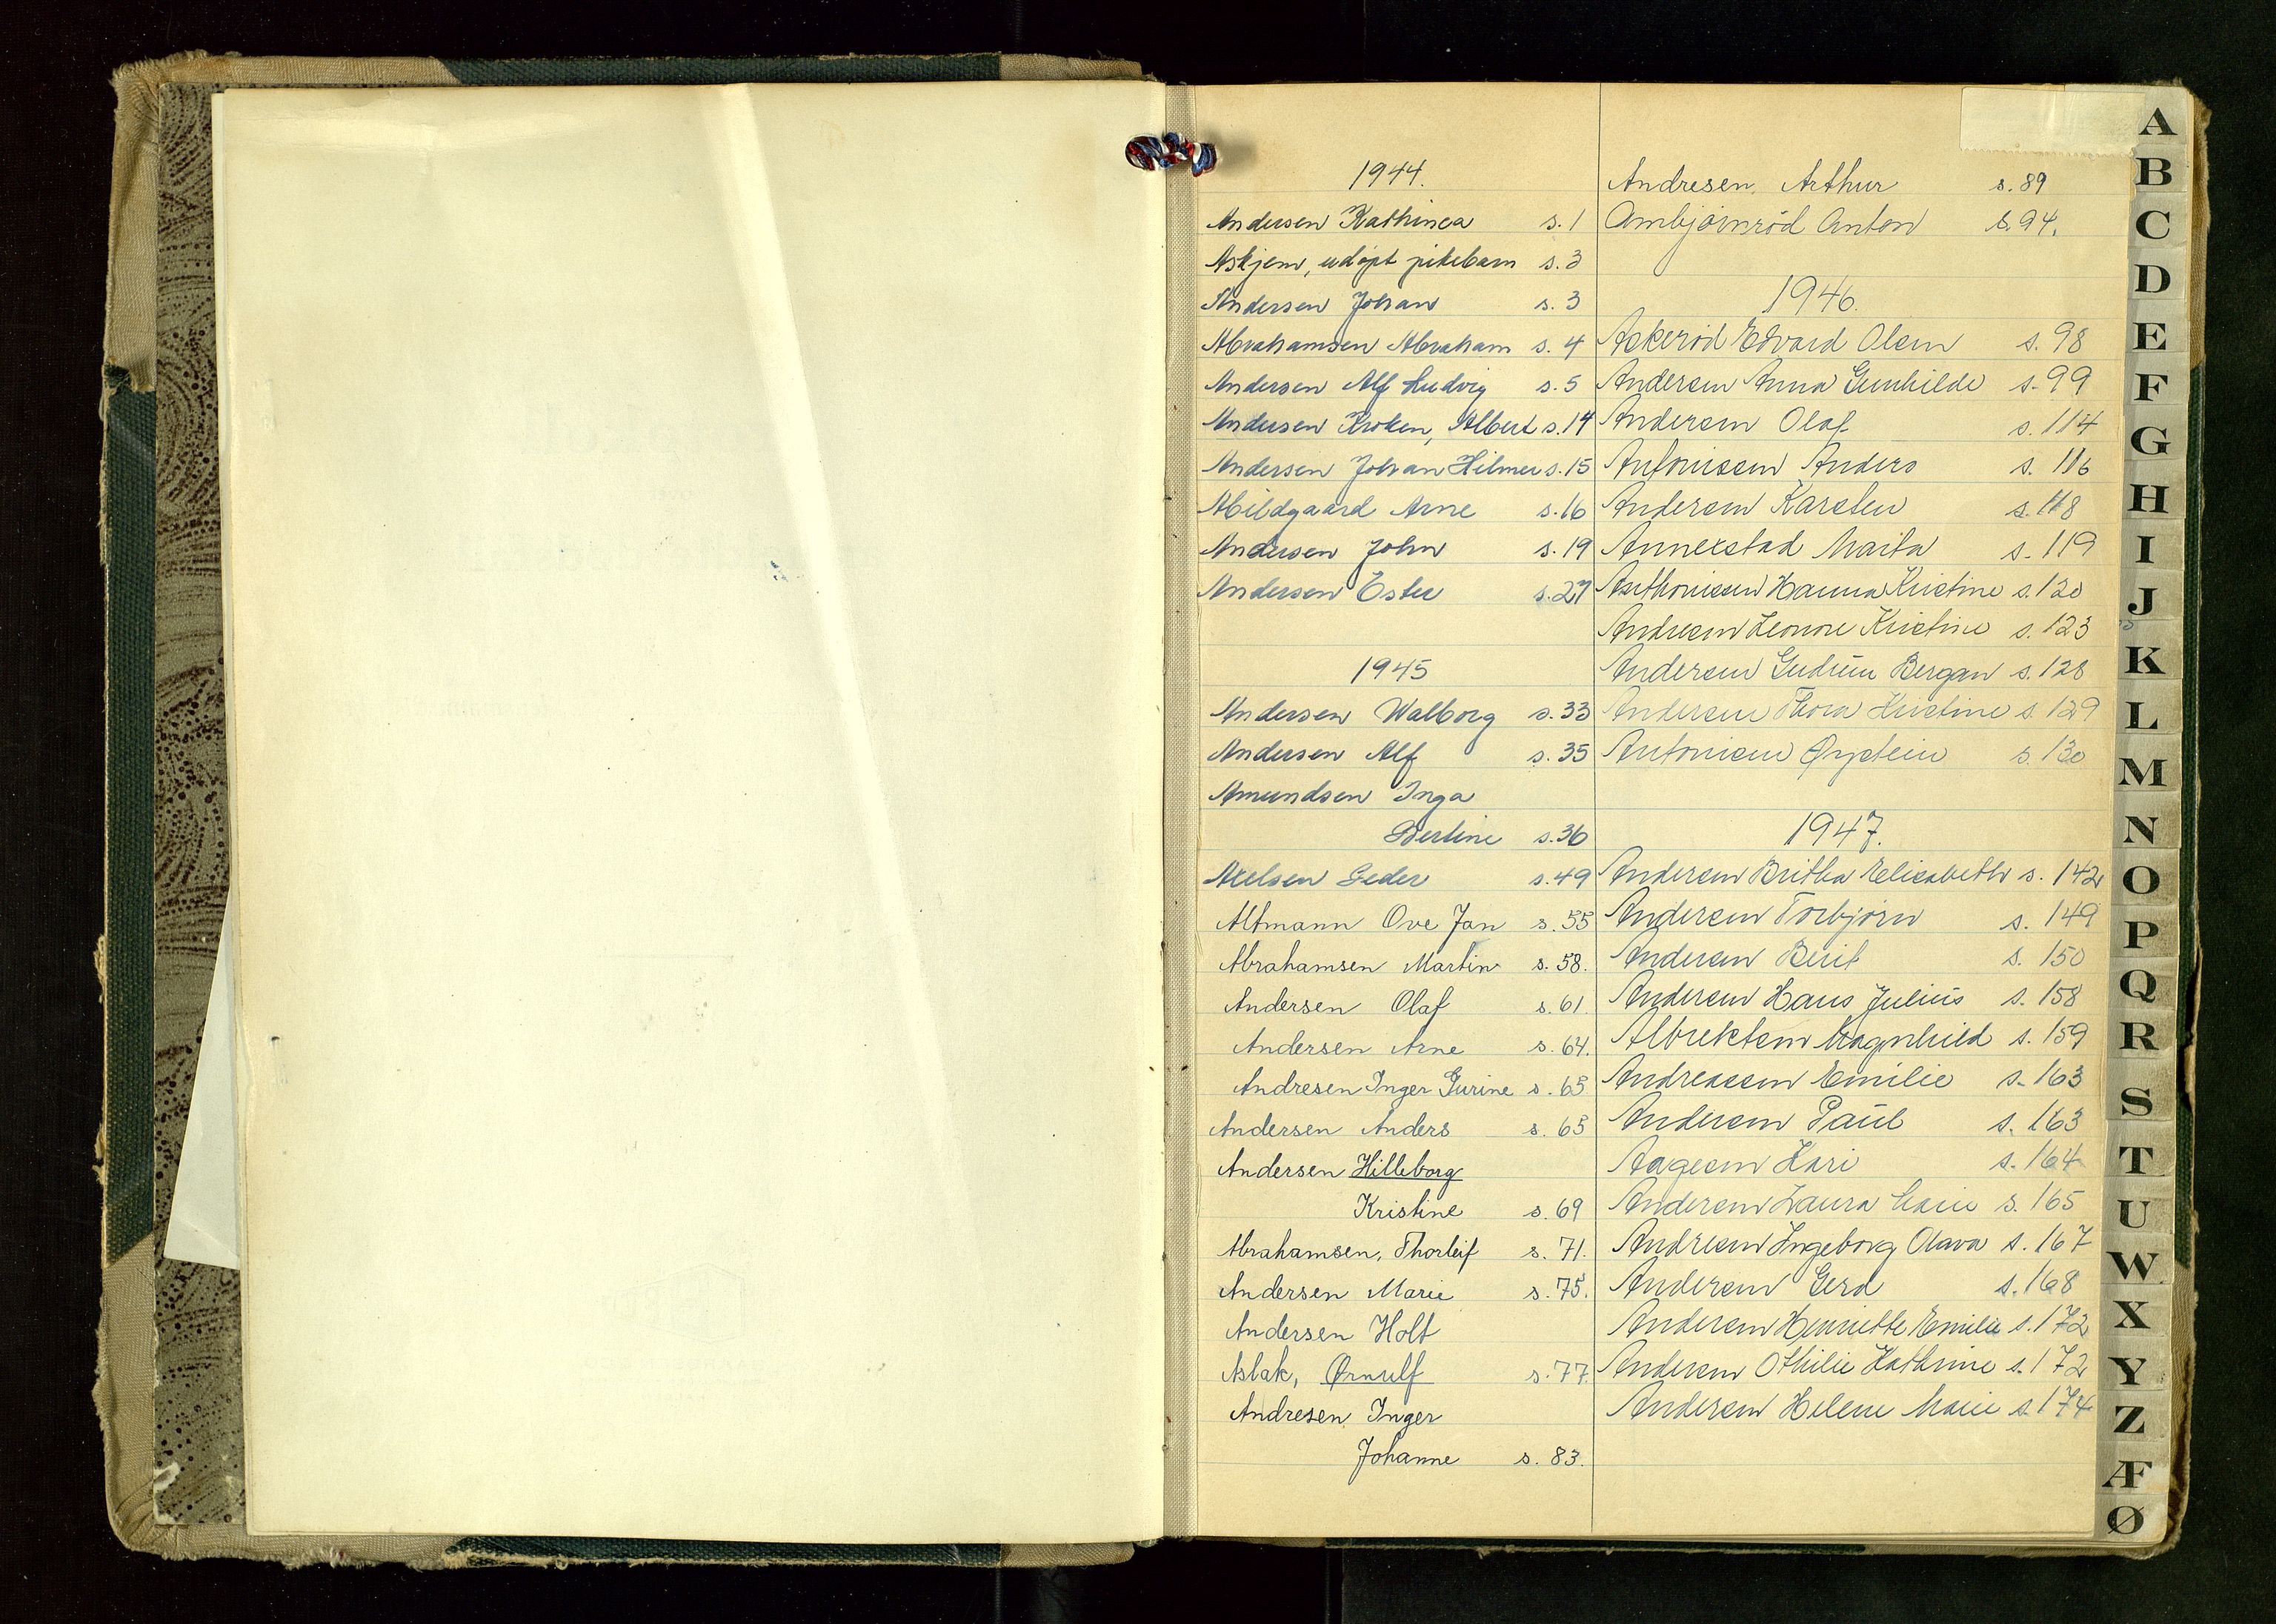 1944.
Andersen Kathinca s. 1
Askjem, udøpt pikebarn s. 3
Andersen Johan s. 3
Abrahamsen Abraham s. 4
Andersen Alf Ludvig s. 5
Andersen Kroken, Albert s. 14
Andersen Johan Hilmer s. 15
Abildgaard Arne s. 16
Andersen John s. 19
Andersen Ester s. 27
1945
Andersen Walborg s. 33
Andersen Alf s. 35
Amundsen Inga
Bertine s. 36
Axelsen Peder s. 49
Altmann Ove Jan s. 55
Abrahamsen Martin s. 58.
Andersen Olaf s. 61.
Andersen Arne s. 64.
Andresen Inger Gurine s. 65
Andersen Anders s. 65
Andersen Hilleborg
Kristine s. 69
Abrahamsen, Thorleif s. 71.
Andersen Marie s. 75.
Andersen Holt
Aslak, Ørnulf s. 77.
Andresen Inger
Johanne s. 83.
Andresen, Arthur s. 89
Ambjørnrød Anton s. 94.
1946.
Askerød Edvard Olsen s. 98
Andersen Anna Gunhilde s. 99
Andersen Olaf s. 114
Antonissen Anders s. 116
Andersen Karsten s. 118
Annekstad Marta s. 119
Anthonissen Hanna Kristine s. 120
Andresen Leonore Kristine s. 123
Andersen Gudrun Bergan s. 128
Andersen Thora Kristine s. 129
Antonisen Øystein s. 130
1947.
Andersen Britha Elisabeth s. 142
Andersen Torbjørn s. 149
Andersen Berit s. 150
Andersen Hans Julius s. 158
Albrektsen Magnhild s. 159
Andreassen Emilie s. 163
Andersen Paul s. 163
Aagesen Kari s. 164
Andersen Laura Marie s. 165
Andresen Ingeborg Olava s. 167
Andersen Gerd s. 168
Andersen Henriette Emilie s. 172
Andersen Othilie Kathrine s. 172
Andersen Helene Marie s. 174
A
B
C
D
E
F
G
H
I
J
K
L
M
N
O
P
Q
R
S
T
U
W
X
Y
Z
Æ
Ø